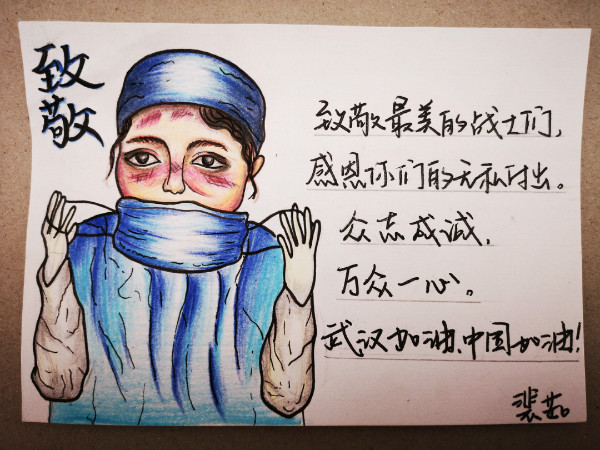 致敬
致敬最美的战士们,
感恩你们的无私付出。
众志成诚,
万众一心。
武汉加油、中国加油!
裴茹